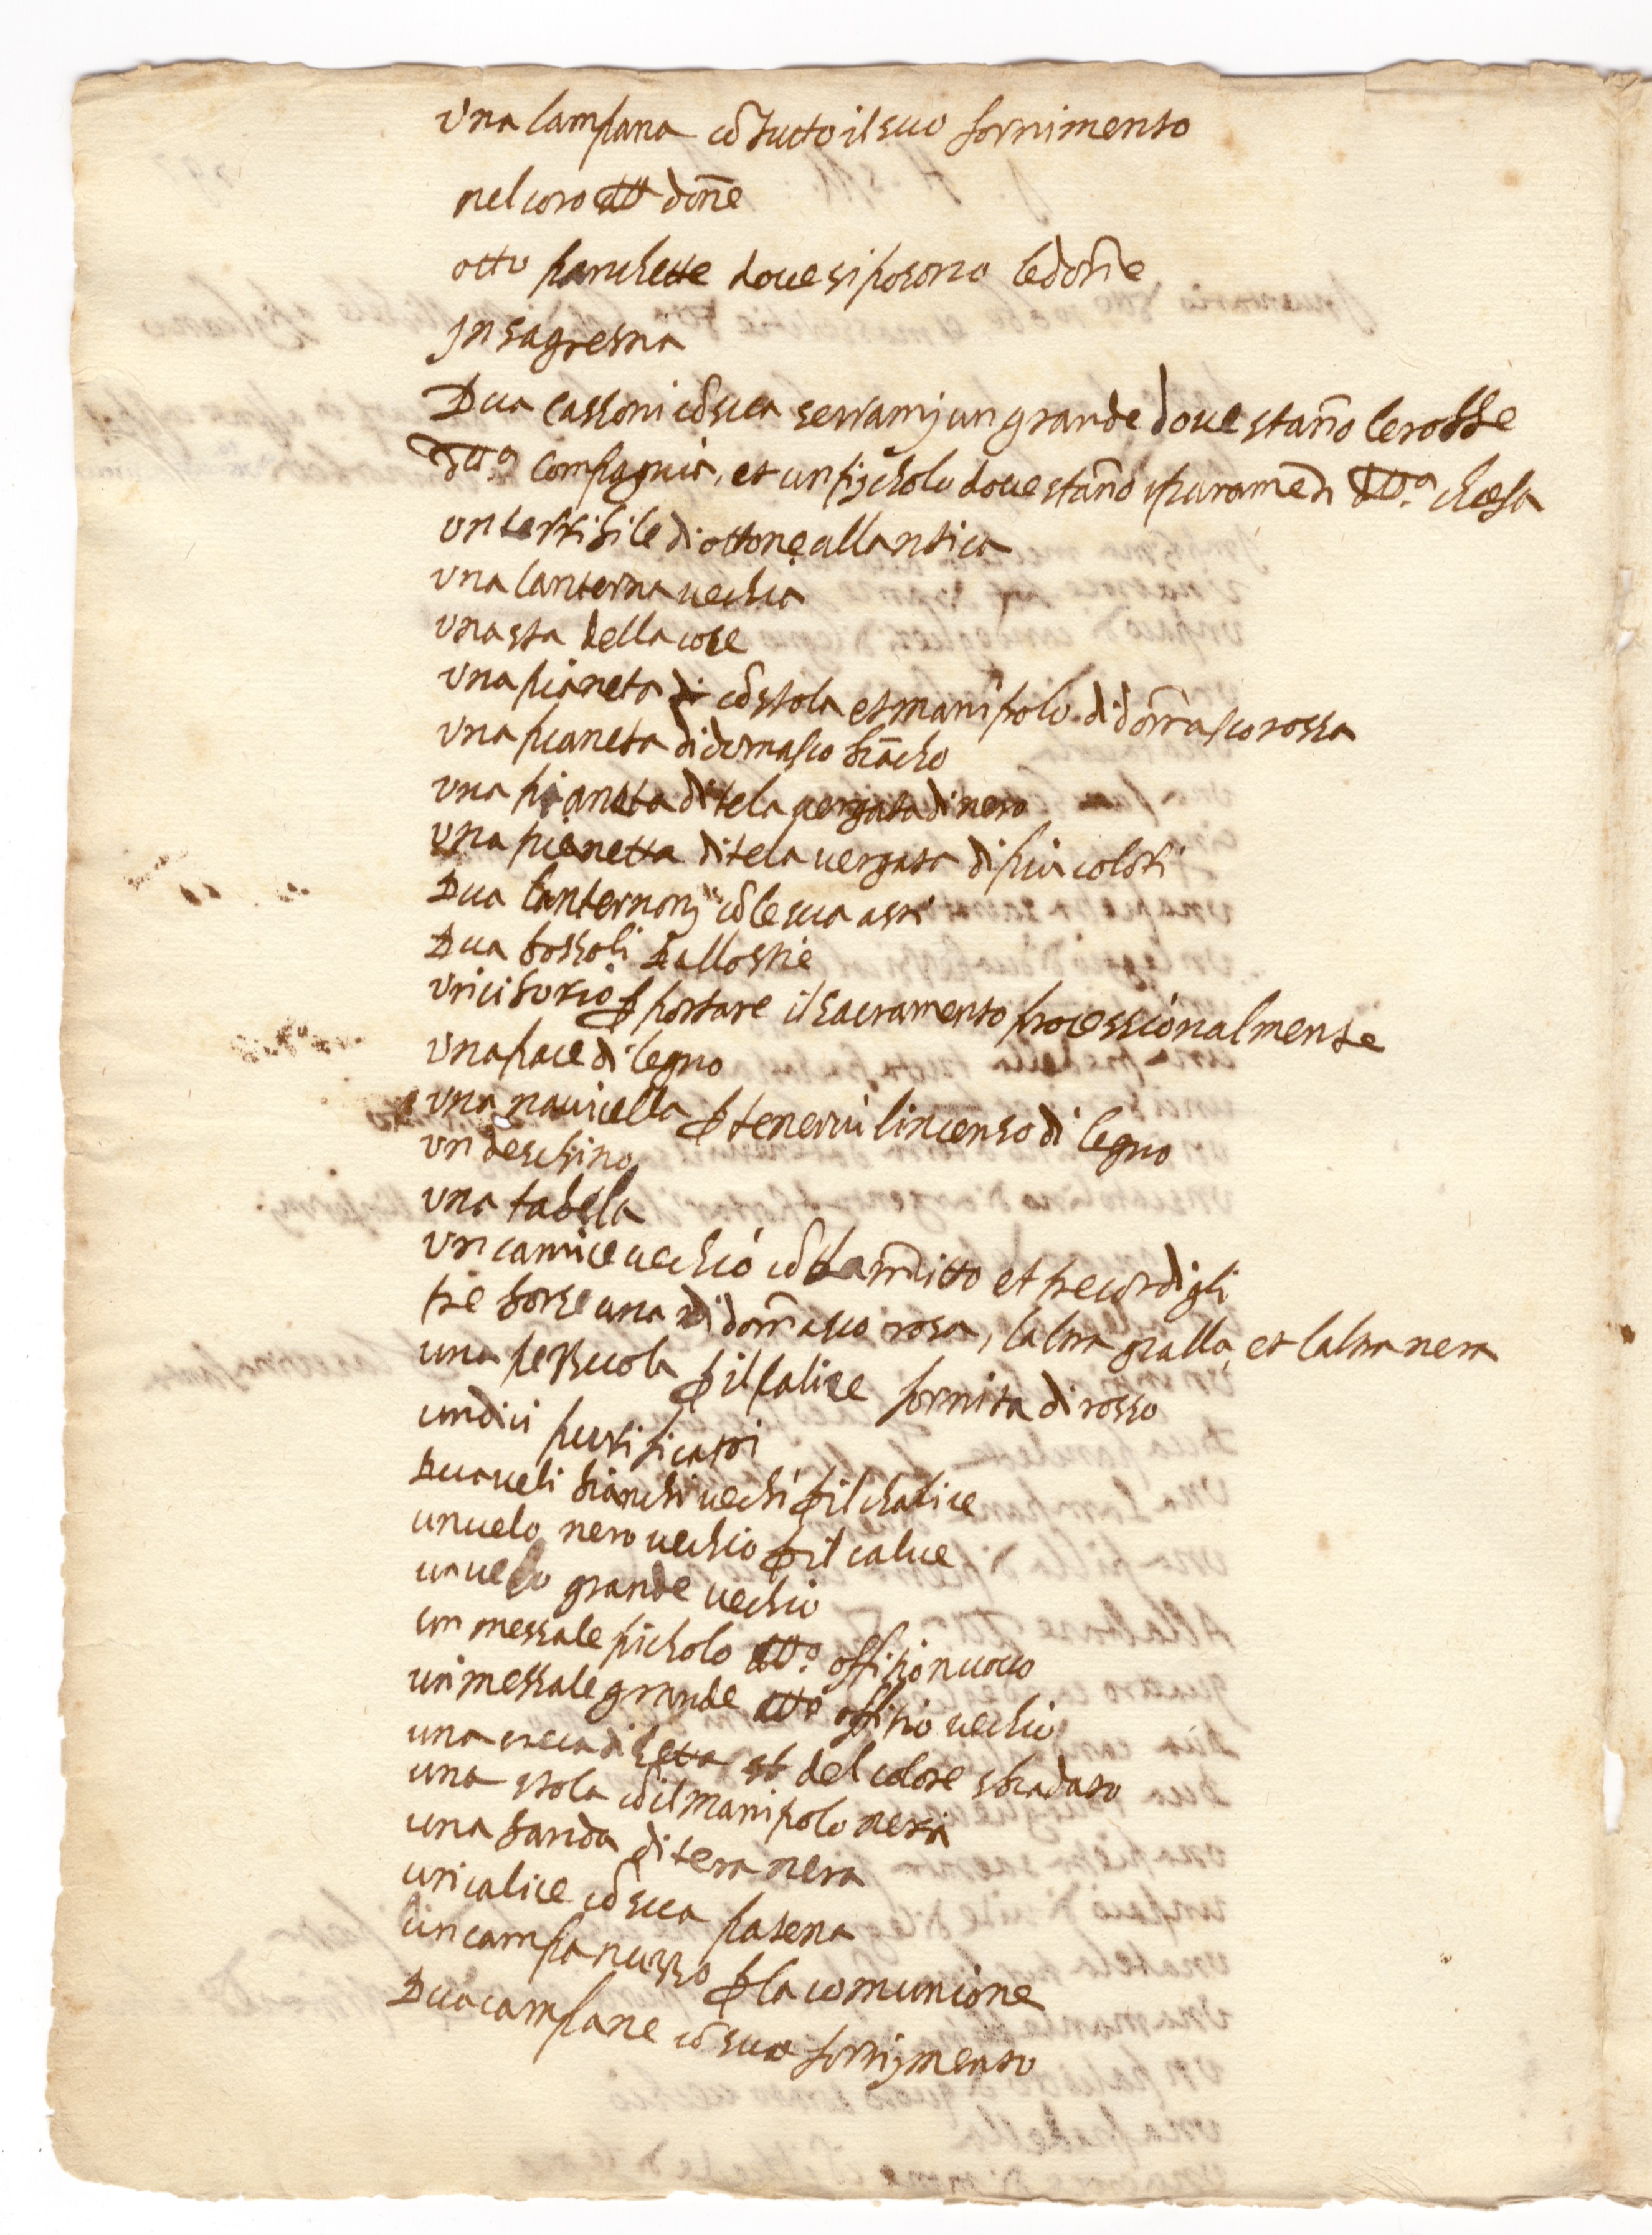 una lampana cō tutto il suo fornimento
nel coro dtt donē
otto panchette doue si posono le donē
in sagrestia
Dua cassoni cō sua serramj un grande doue stano le robbe
dtta compagnia, et un picholo doue stano i paramēti dtta chiesa
un terribile di ottone allantica
una lanterna uechia
una sta della croce
una pianeta di cō stola et manipolo di domasco rossa
una pianeta di domasco biācho
una pianeta di tela uergata di nero
una pianetta di tela uergata di piu colori
Dua lanternonj cō le sua asti
Dua bossoli dallostie
un ciborio p portare il sacramento processionalmente
una pace di legno
una nauicella p tenerui lincenso di legno
un deschino
una tabela
un camice uechio cō lamitto et tre cordigli
tre borse una di domasco rosa, laltra gialla, et laltra nera
una pezzuola p il calice fornita di rosso
undici purificatoi
Dua ueli bianchi uechi p il chalice
un uelo nero uechio p il calice
un uelo grande uechio
un messale picholo dtto offitio nuouo
un messale grande dtto offitio uechio
una di setta del colore sbiadato
una stola cō il manipolo neri
una banda di tera nera
un calice cō sua patena
un campanuzzo p la comunione
Dua campane cō suo fornimento